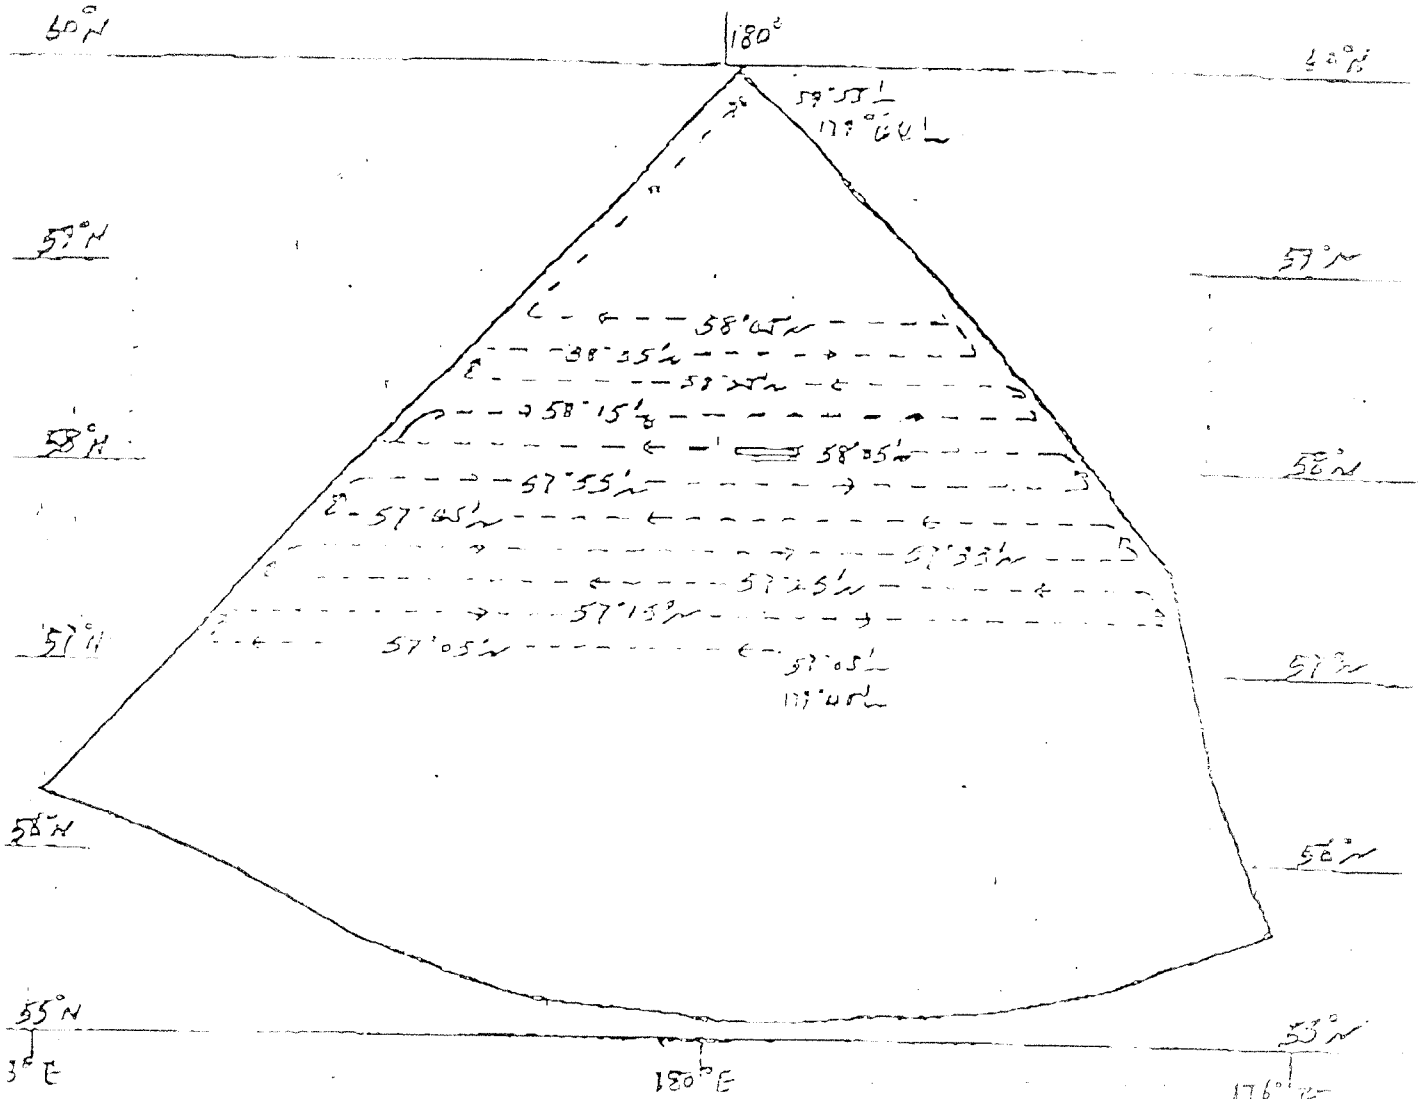 60°N
180°
60°N
59°55'
59°N
59°N
58°45'N
58°35'N
58°25'N
58°15'N
58°N
58°05'N
58°N
57°55'N
57°45'N
57°35'N
57°25'N
57°15'N
57°N
57°05'N
57°05'
57°N
179°40'
56°N
56°N
55°N
55°N
180°E
176°